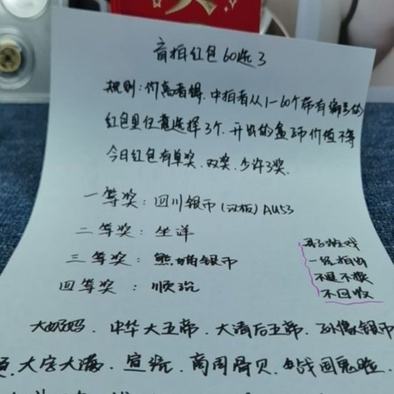 盲拍红包60选3
规则:价高者得.中拍者从1-60个带有编号的
红包里任意选择3个.开出的盒币价值不等
今日红包有单奖.双奖.少许3奖.
一等奖:四川银币(汉板)AU53
二等奖:坐洋
三等奖:熊猫银币
四等奖:顺治
盲盒游戏
一经拍出
不退不换
不回收
大奶妈.中华大五帝.大清后五帝.孙像银币
大字大满.宣统.商周骨贝.